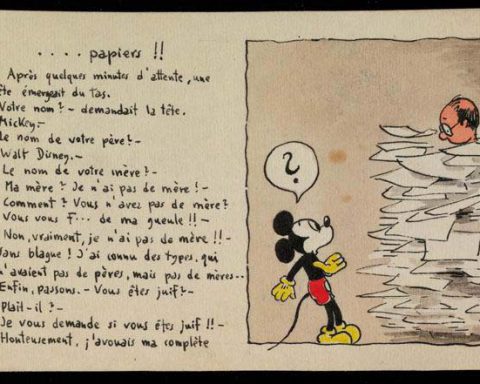 .... papiers !!
Après quelques minutes d'attente, une
ête émergeait du tas.
Votre nom ? - demandait la tête.
Mickey.-
Le nom de votre père ? -
Walt Disney.-
Le nom de votre mère ? -
Ma mère ? Je n'ai pas de mère ! -
Comment ? Vous n'avez pas de mère ?
Vous vous F... de ma gueule !! -
Non, vraiment, je n'ai pas de mère !! -
Sans blague ! J'ai connu des types, qui
n'avaient pas de pères, mais pas de mères..
Enfin, passons. - Vous êtes juif ? -
Plait-il ? -
Je vous demande si vous êtes juif !! -
Honteusement, j'avouais ma complète
?